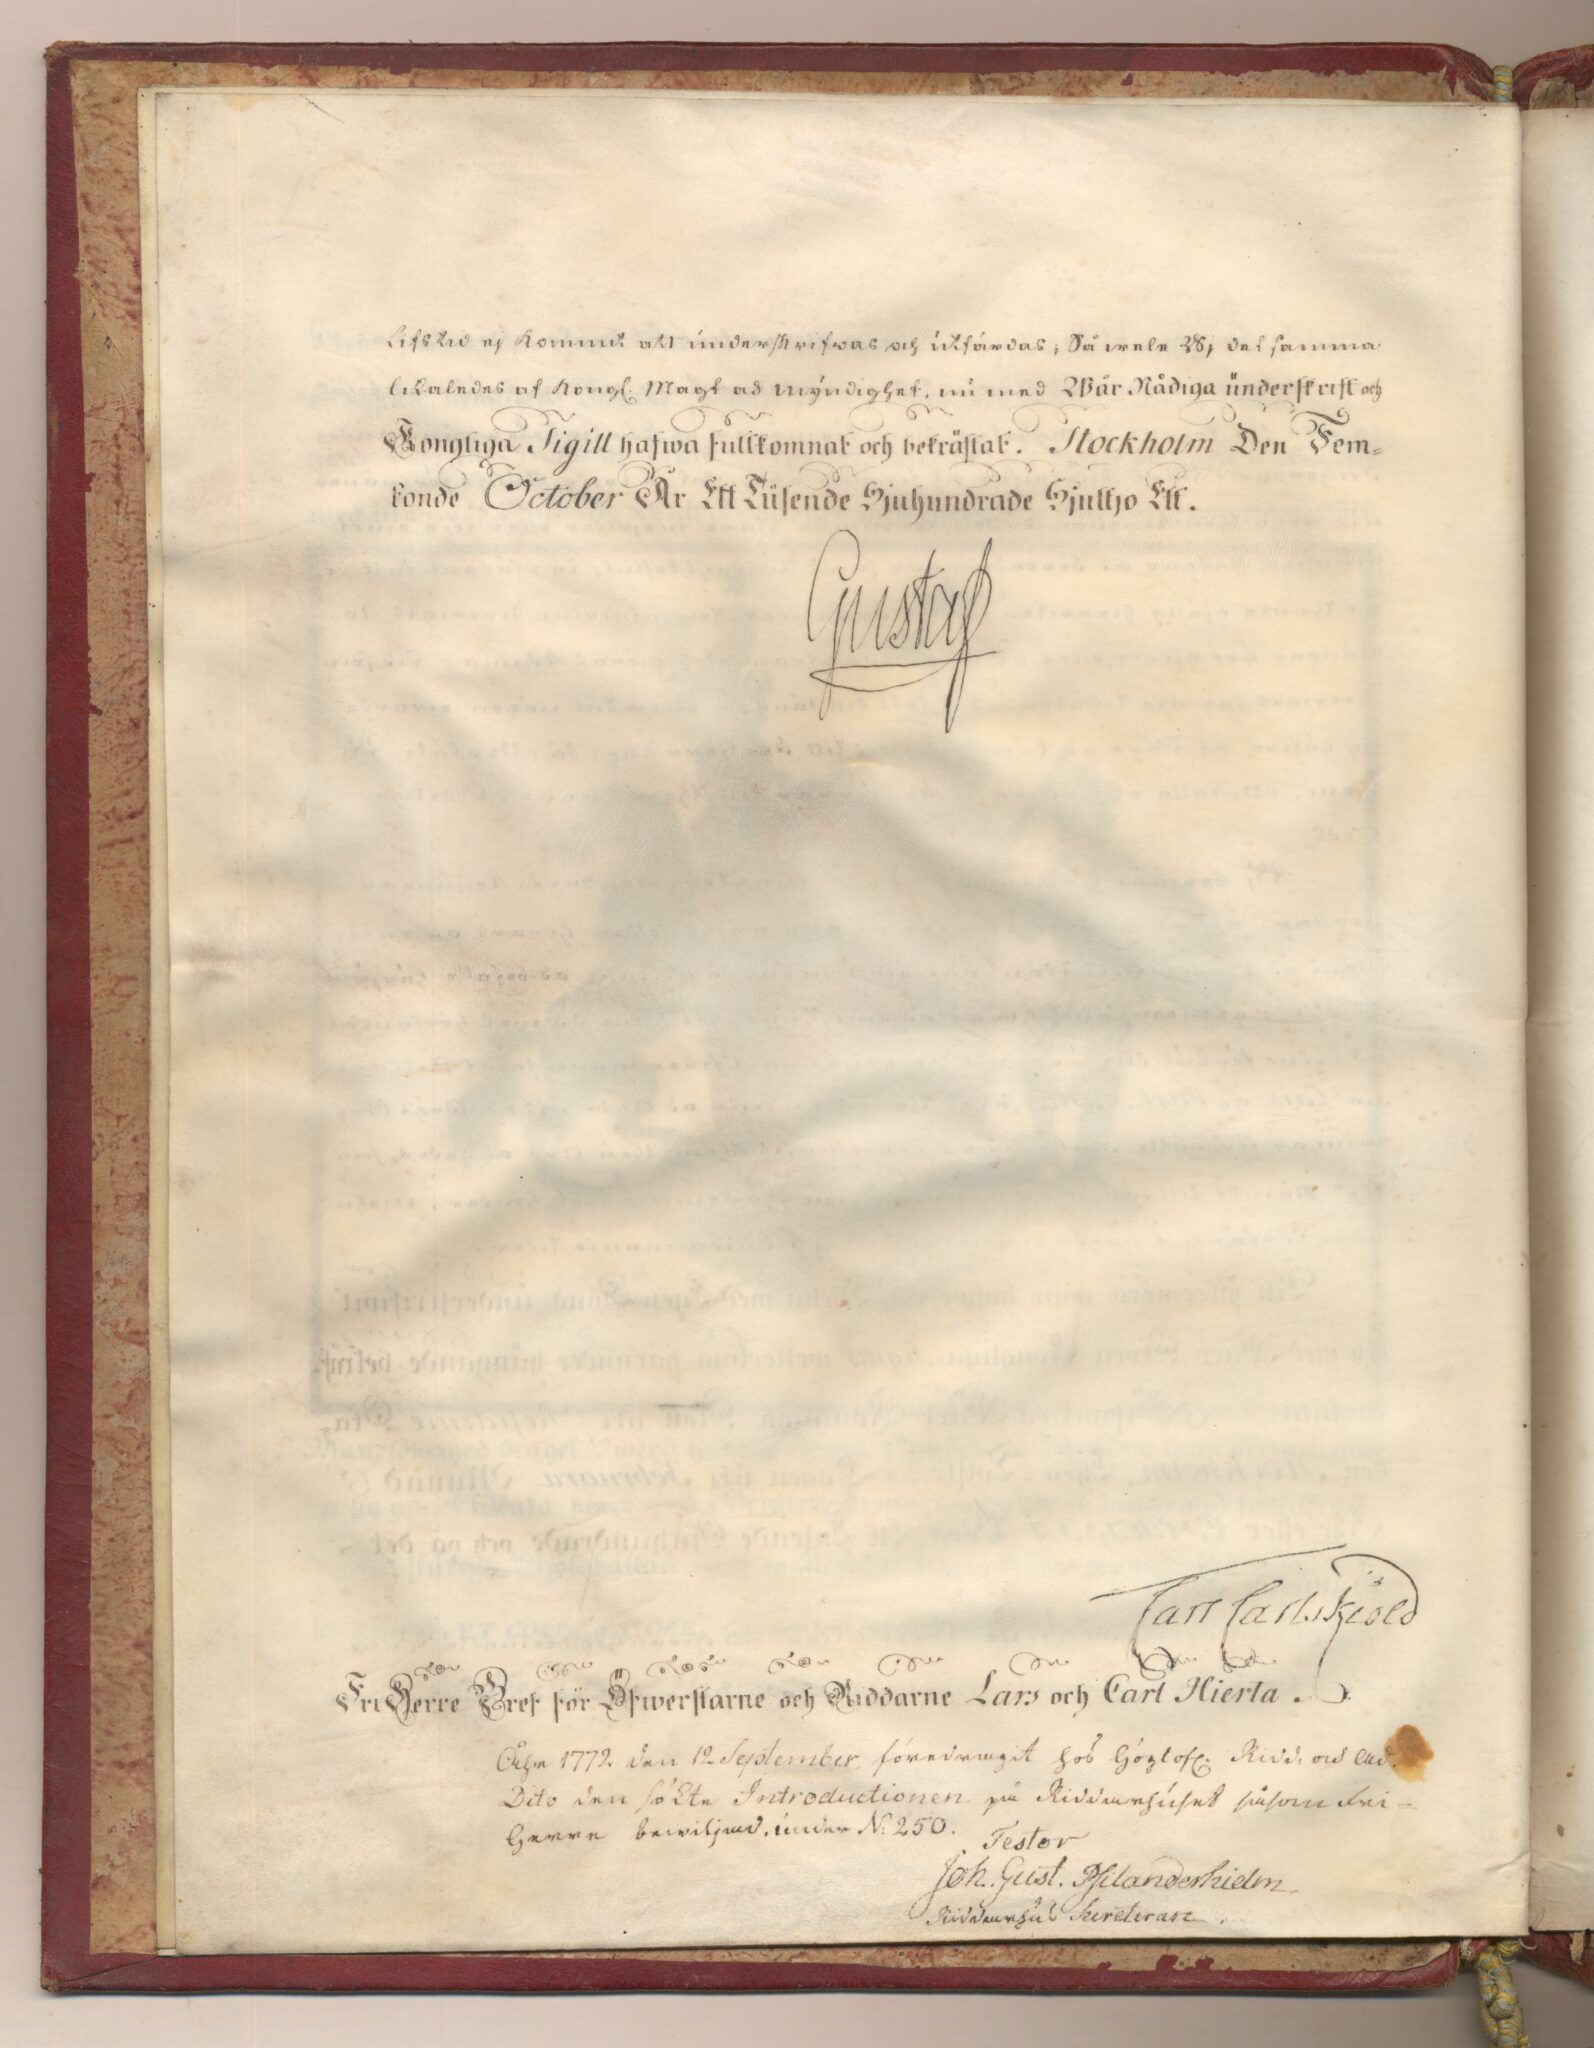 Lifstid ej kommit att underskrifwas och utfärdas; Så wele Wj det samma
likaledes af Kongl. Magt ad myndighet, nu med Wår Nådiga underskrift och
Kongliga Sigill hafwa fullkomnat och bekräftat. Stockholm Den Fem-
tonde October År Ett Tusende Sjuhundrade Sjuttjo Ett.
Gustaf
Carl Carlskiöld
FriHerre Bref för Öfwerstarne och Riddarne Lars och Carl Hierta.
Åhr 1772. den 12 September föredragit hos Höglofl. Ridd: ad
Dito den sökte Introductionen på Riddarhuset såsom Fri-
Herre bewiljad, under N: 250.
Testor
Joh. Gust. Psilanderhielm
Riddarhus Secreterare